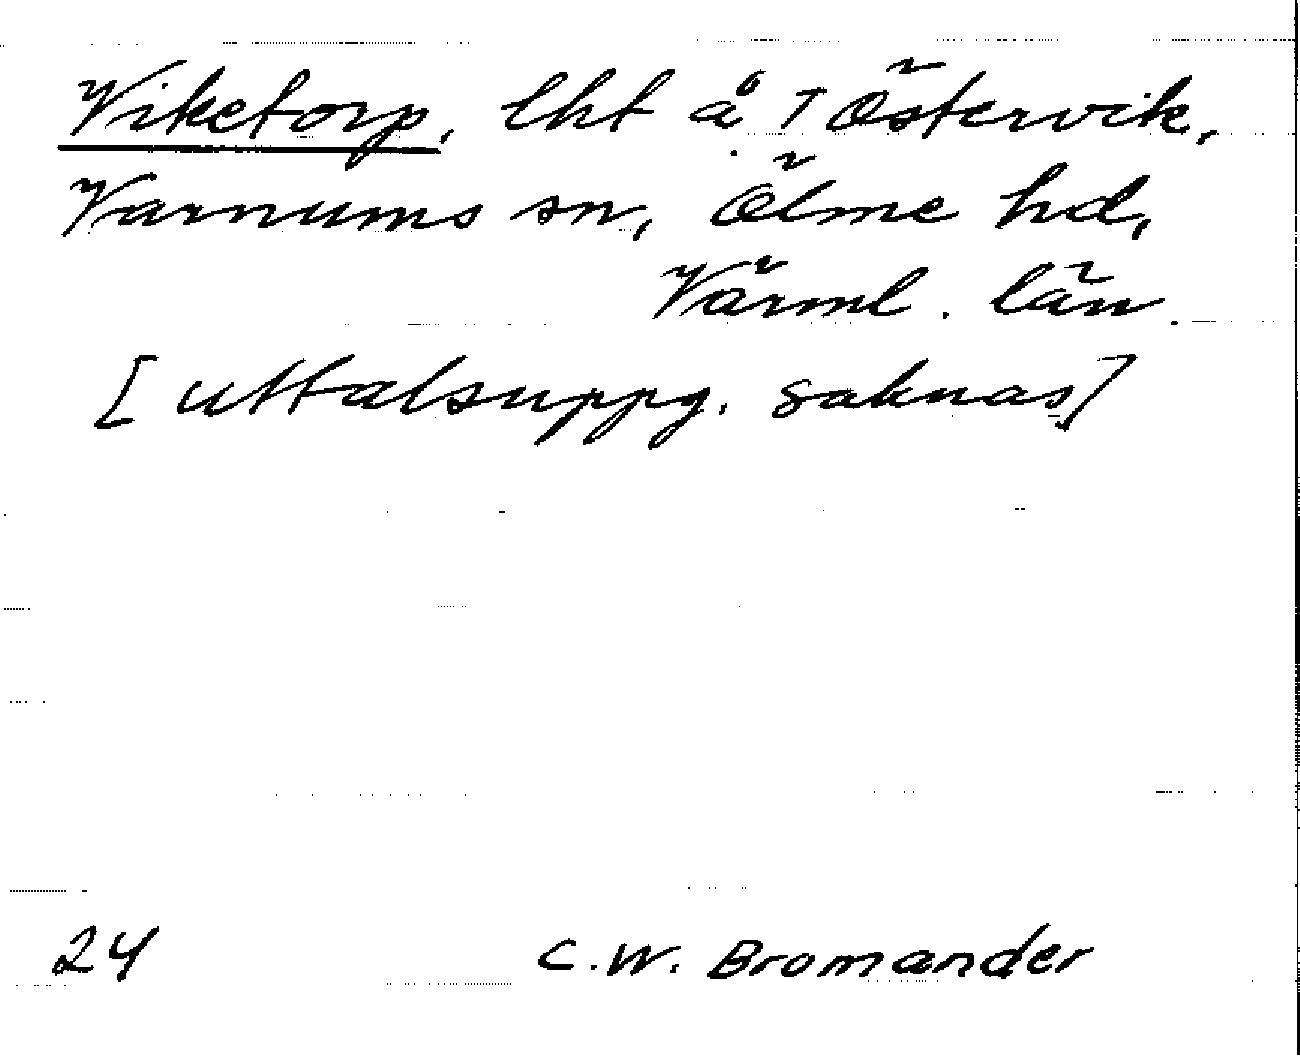 Viketorp, lht å T Östervik,
Varnums sn, Ölme hd,
Värml. län.
[uttalsuppg. saknas]
24 C.W. Bromander